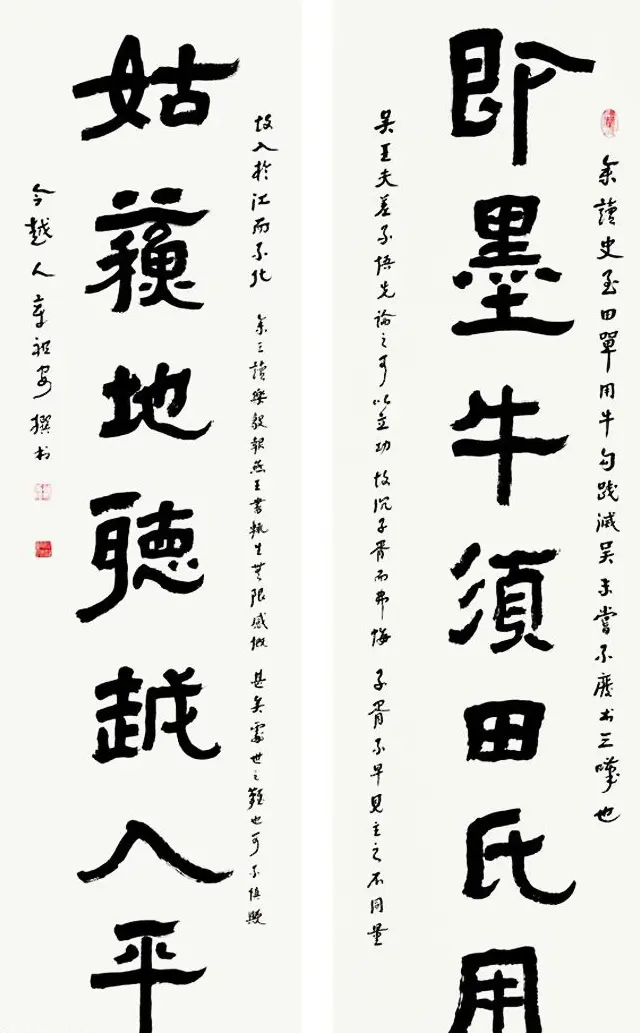 余讀史至田單用牛勾踐滅吳未嘗不廢書三嘆也
即墨牛須田氏用
吳王夫差不悟先論之可以立功 故沉子胥而弗悔 子胥不早見主之不同量
故入於江而不化 余三讀樂毅報燕王書輒生無限感慨 甚矣處世之難也可不慎歟
姑蘇地聽越人平
今越人章祖安撰書